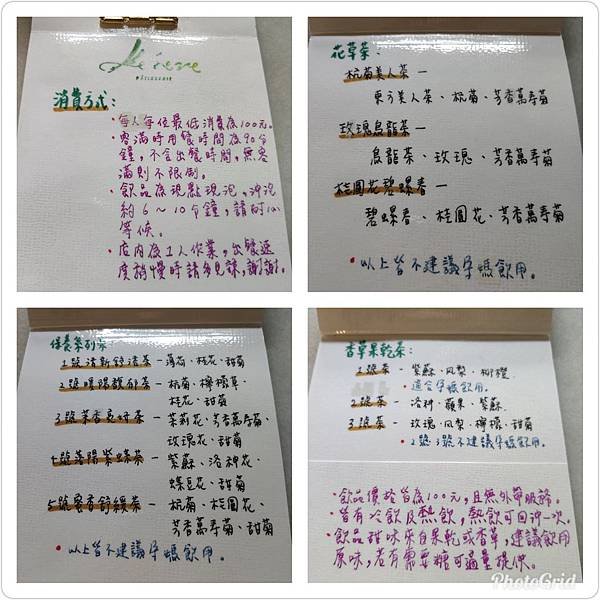 消費方式：
•每人每位最低消費為100元。
•客滿時用餐時間為90分
鐘，不含出餐時間，無客
滿則不限制。
•飲品為現點現泡，沖泡
約6～10分鐘，請耐心
等候。
•店內為1人作業，出餐速
度稍慢時請多見諒，謝謝。
花草茶：
杭菊美人茶－
東方美人茶、杭菊、芳香萬壽菊
玫瑰烏龍茶－
烏龍茶、玫瑰、芳香萬壽菊
桂圓花碧螺春－
碧螺春、桂圓花、芳香萬壽菊
•以上皆不建議孕媽飲用。
保養系列茶
1號清新舒清茶－薄荷、桂花、甜菊
2號暖陽馥郁茶－杭菊、檸檬草、
桂花、甜菊
3號茉香良好茶－茉莉花、芳香萬壽菊、
玫瑰花、甜菊
4號落陽紫蝶茶－紫蘇、洛神花、
蝶豆花、甜菊
5號蜜香舒緩茶－杭菊、桂圓花、
芳香萬壽菊、甜菊
•以上皆不建議孕媽飲用。
香草果乾茶：
1號茶－紫蘇、鳳梨、柳橙
•適合孕媽飲用。
2號茶－洛神、蘋果、紫蘇
3號茶－玫瑰、鳳梨、檸檬、甜菊
•2號、3號不建議孕媽飲用。
•飲品價格皆為100元，且無外帶服務。
•皆有冷飲及熱飲，熱飲可回沖一次。
•飲品甜味來自果乾或香草，建議飲用
原味，若有需要糖可適量提供。
PhotoGrid